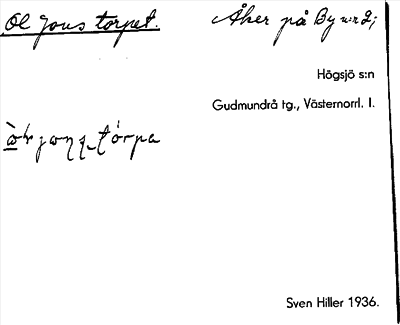 Ol Jons torpet. Åker på By n:r 2;
Högsjö s:n
Gudmundrå tg., Västernorrl. l.
Sven Hiller 1936.